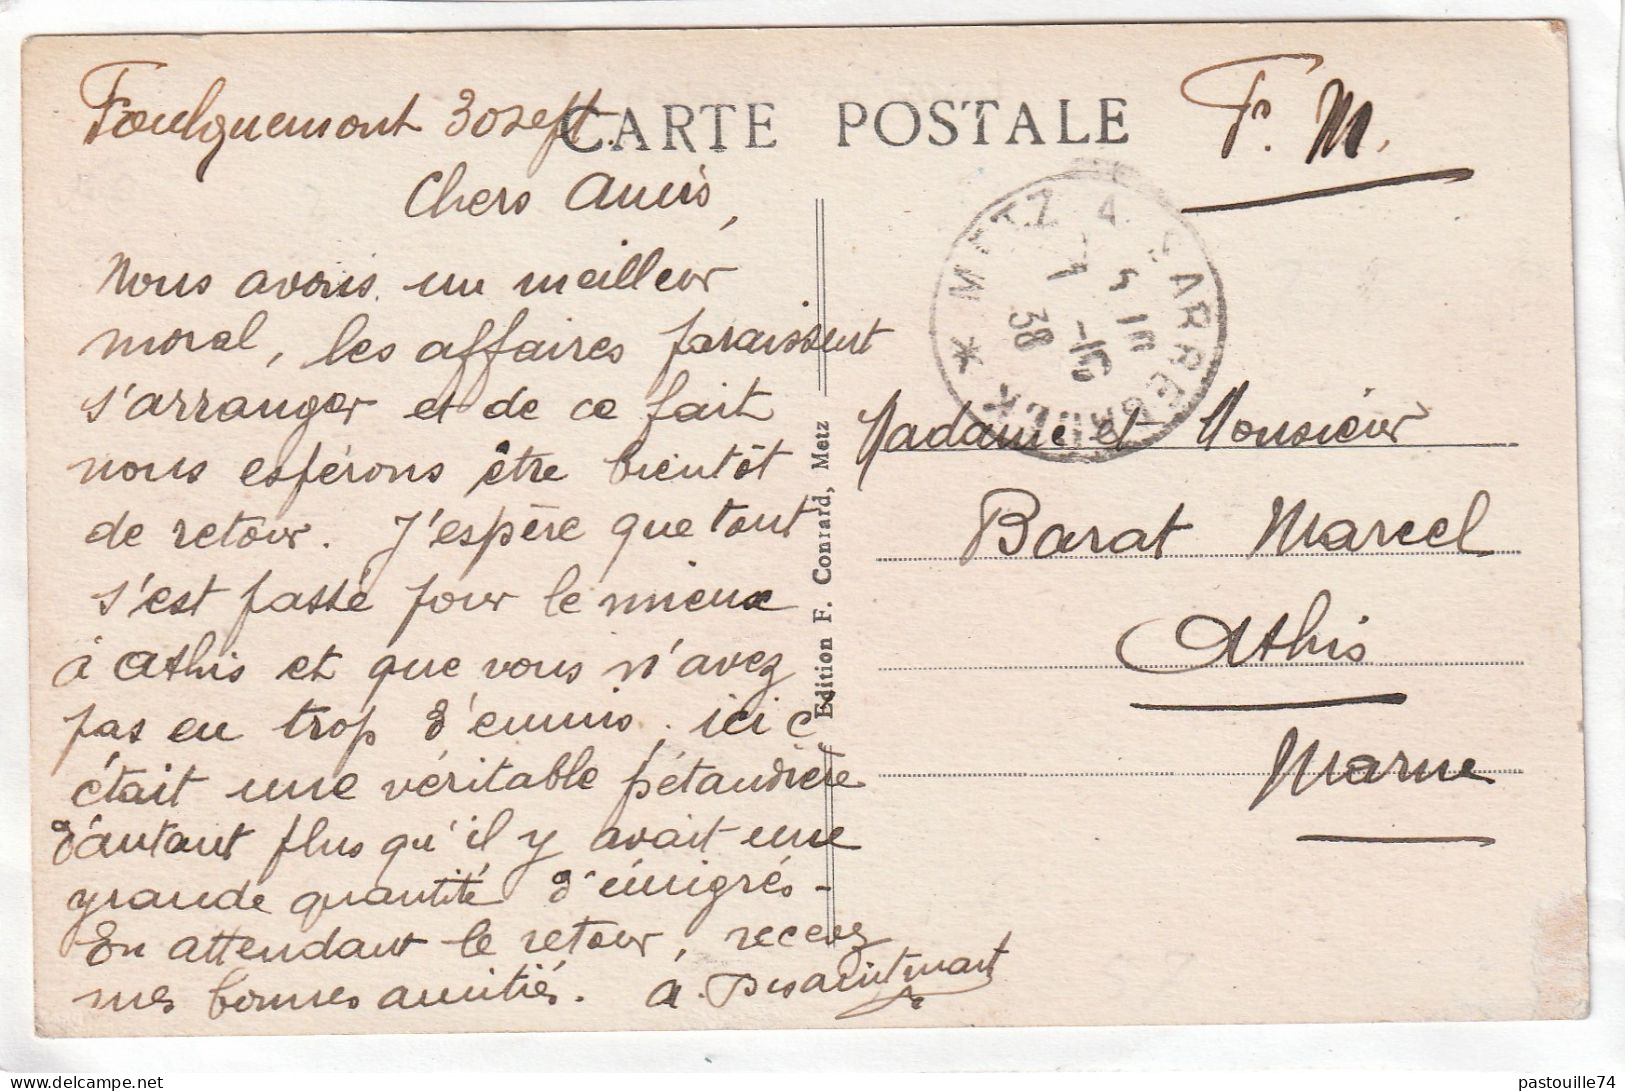 Faulquemont 30 sept.
CARTE POSTALE
F. M.
Chers Amis,
METZ 4
38
Nous avons un meilleur
moral, les affaires paraissent
s'arranger et de ce fait
nous espérons être bientôt
de retour. J'espère que tout
s'est passé pour le mieux
à Athis et que vous n'avez
pas eu trop d'ennuis, ici c'
était une véritable pétaudière
d'autant plus qu'il y avait une
grande quantité d'émigrés -
En attendant le retour, recevez
mes bonnes amitiés. A.
Edition F. Conrard, Metz
Madame et Monsieur
Barat Marcel
Athis
Marne
pastouille74